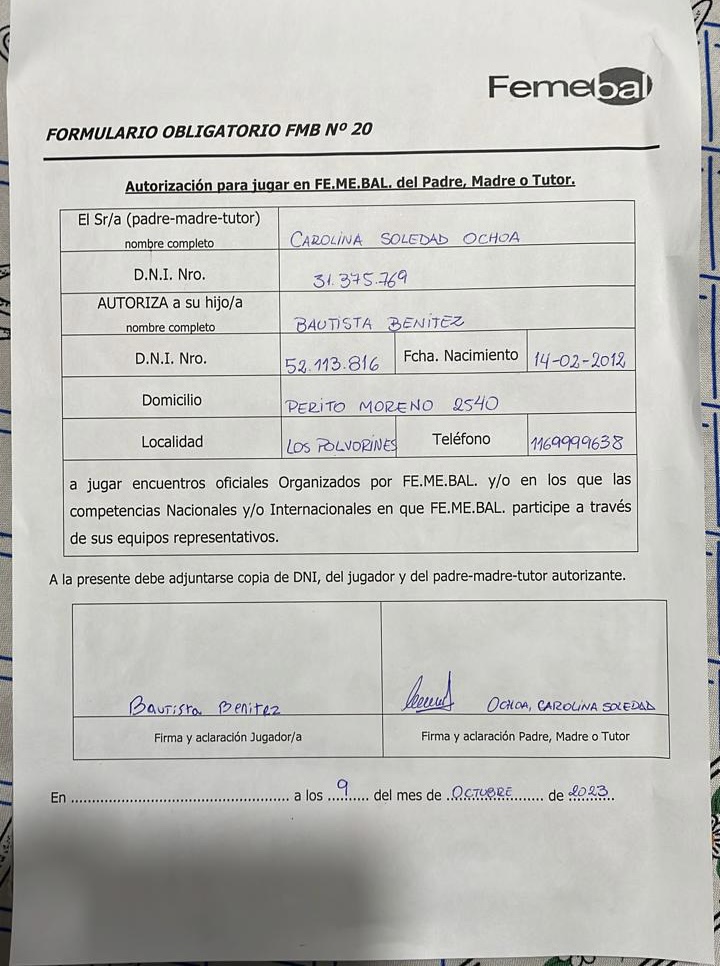 Femebal
FORMULARIO OBLIGATORIO FMB Nº 20
Autorización para jugar en FE.ME.BAL. del Padre, Madre o Tutor.
El Sr/a (padre-madre-tutor)
nombre completo
CAROLINA SOLEDAD OCHOA
D.N.I. Nro.
31.375.769
AUTORIZA a su hijo/a
nombre completo
BAUTISTA BENITEZ
D.N.I. Nro.
52.113.816
Fcha. Nacimiento
14-02-2012
Domicilio
PERITO MORENO 2540
Localidad
LOS POLVORINES
Teléfono
1169999638
a jugar encuentros oficiales Organizados por FE.ME.BAL. y/o en los que las
competencias Nacionales y/o Internacionales en que FE.ME.BAL. participe a través
de sus equipos representativos.
A la presente debe adjuntarse copia de DNI, del jugador y del padre-madre-tutor autorizante.
Bautista Benitez
OCHOA, CAROLINA SOLEDAD
Firma y aclaración Jugador/a
Firma y aclaración Padre, Madre o Tutor
En ................................................ a los ..9...... del mes de .OCTUBRE....... de 2023.